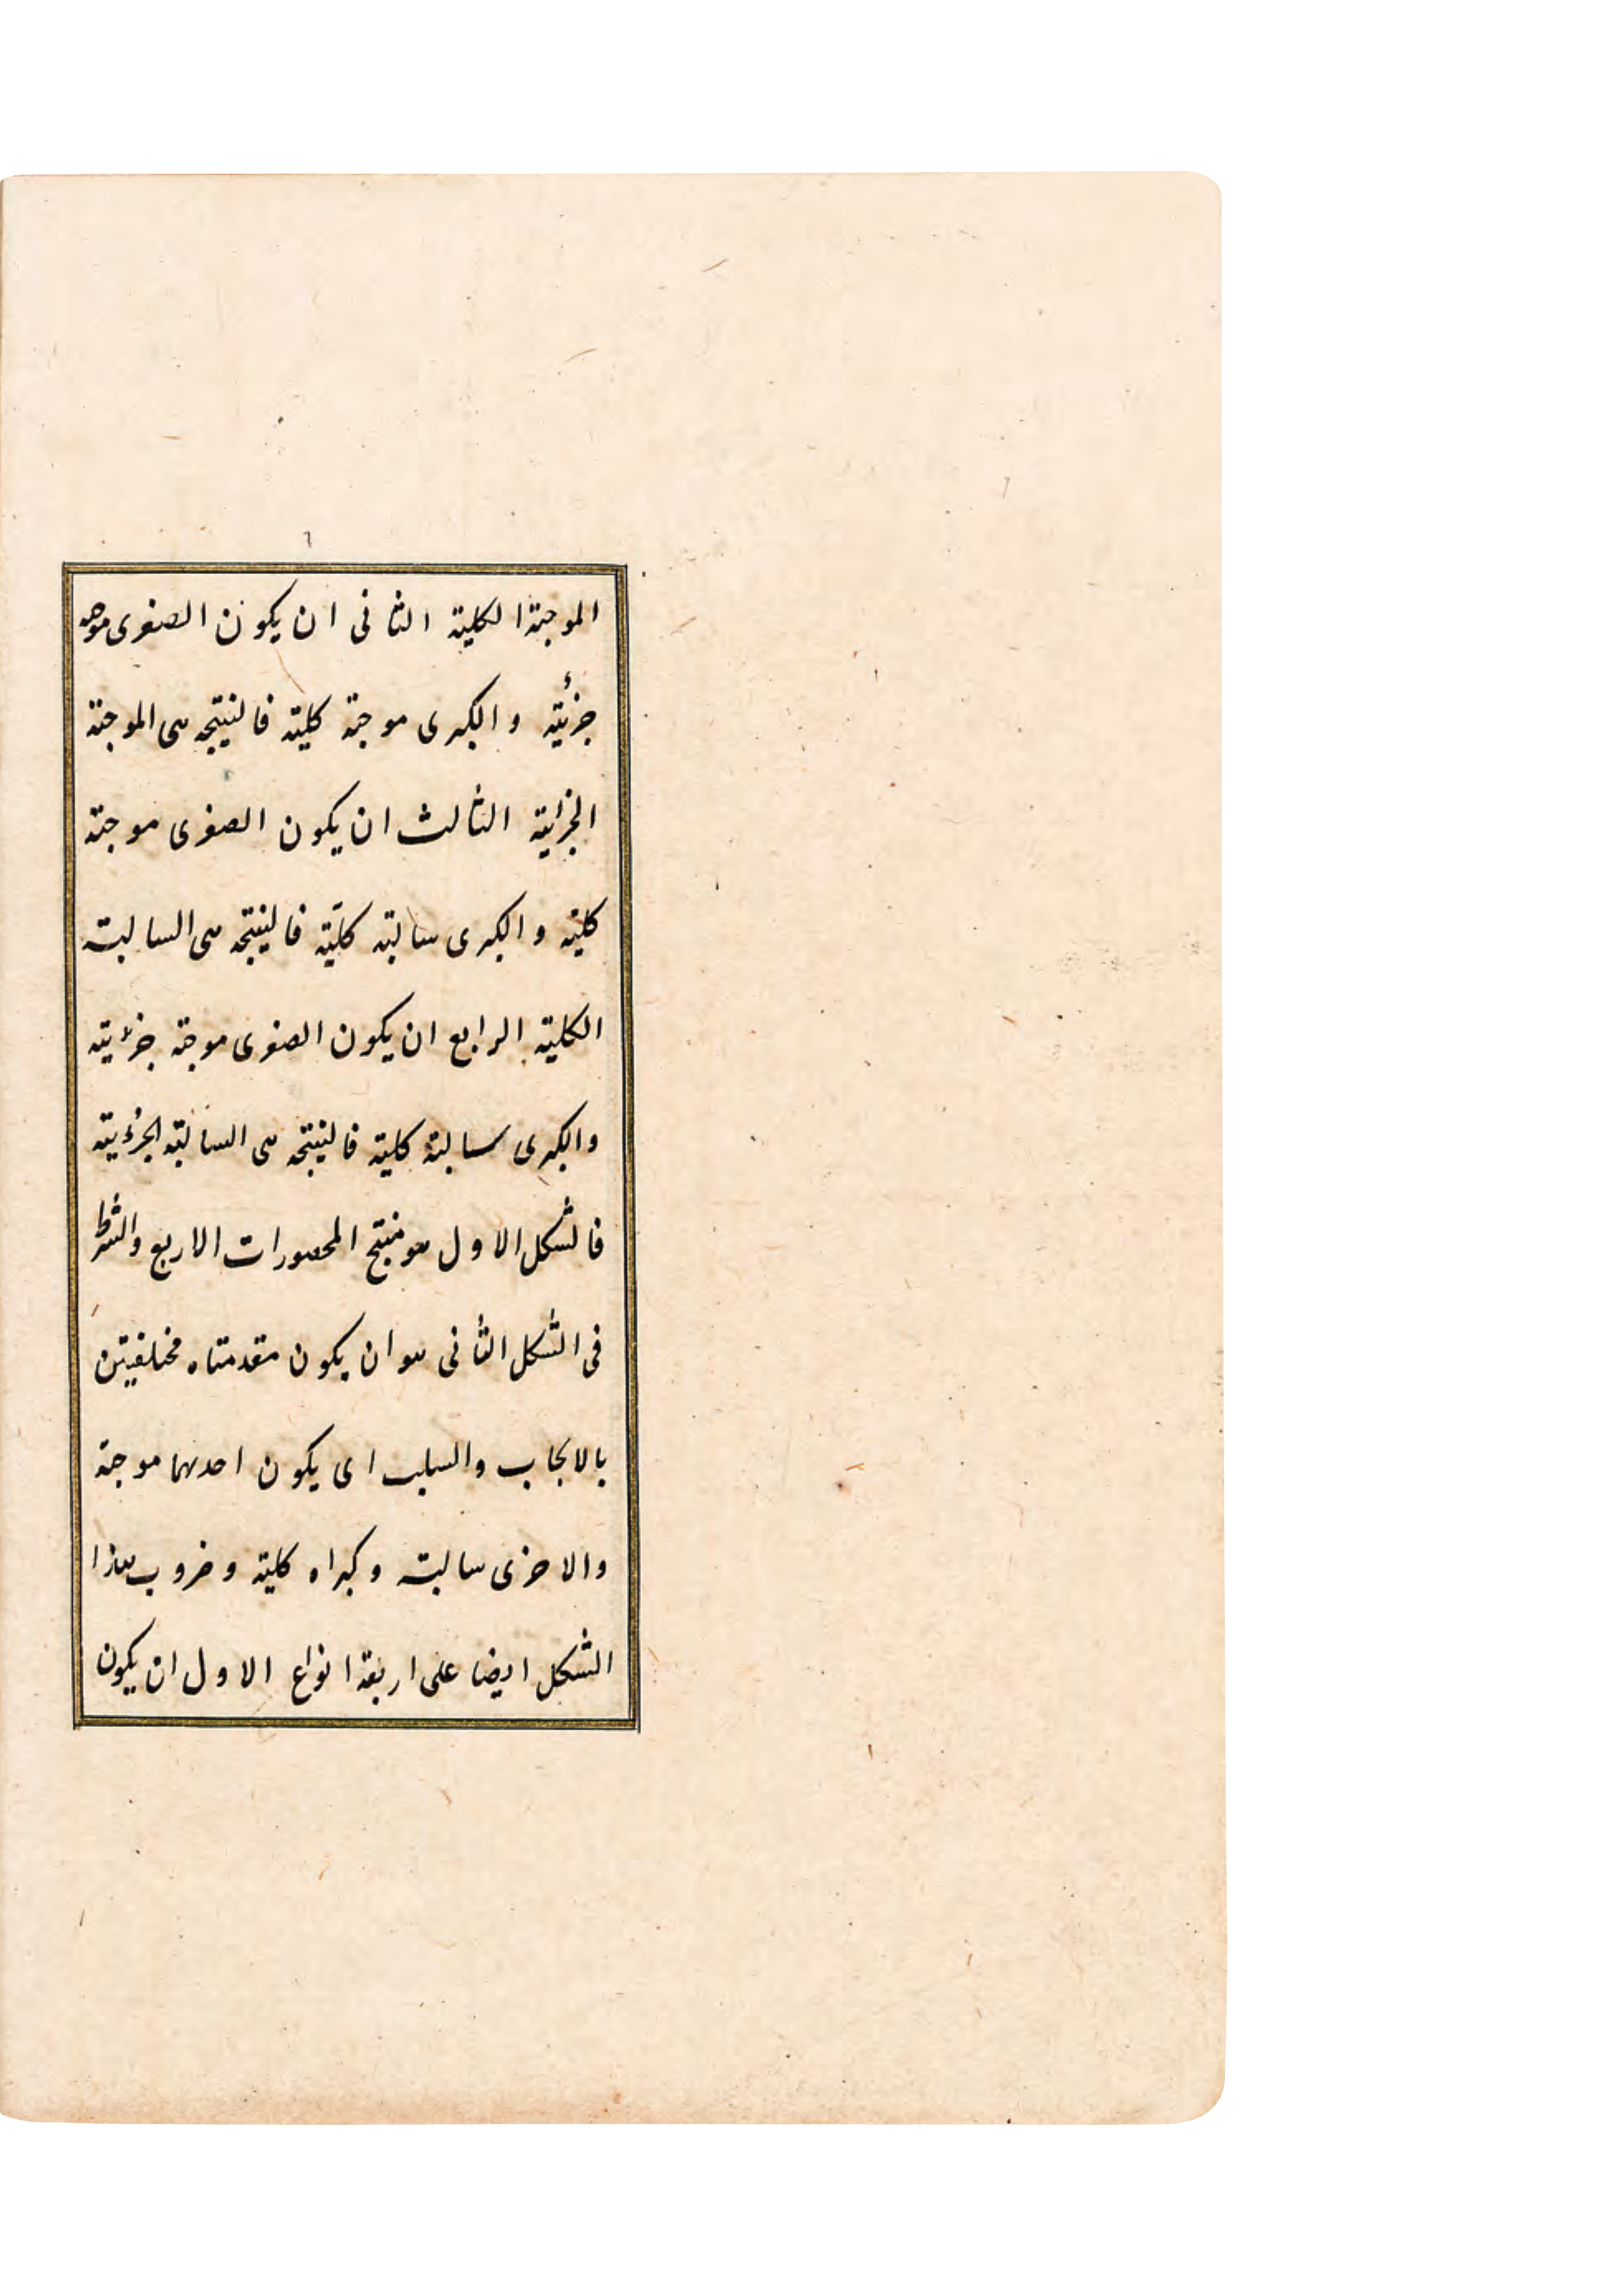 الموجبة الكلية الثانى ان يكون الصغرى موجبه
جزئية والكبرى موجبة كلية فالنتيجه هى الموجبة
الجزئية الثالث ان يكون الصغرى موجبة
كلية والكبرى سالبة كلية فالنتيجه هى السالبة
الكلية الرابع ان يكون الصغرى موجبة جزئية
والكبرى سالبة كلية فالنتيجه هى السالبة الجزئية
فالشكل الاول هو منتج المحصورات الاربع والشرط
فى الشكل الثانى هو ان يكون مقدمتاه مختلفتين
بالايجاب والسلب اى يكون احديهما موجبة
والاخرى سالبة وكبراه كلية وضروب هذا
الشكل ايضا على اربعة انواع الاول ان يكون